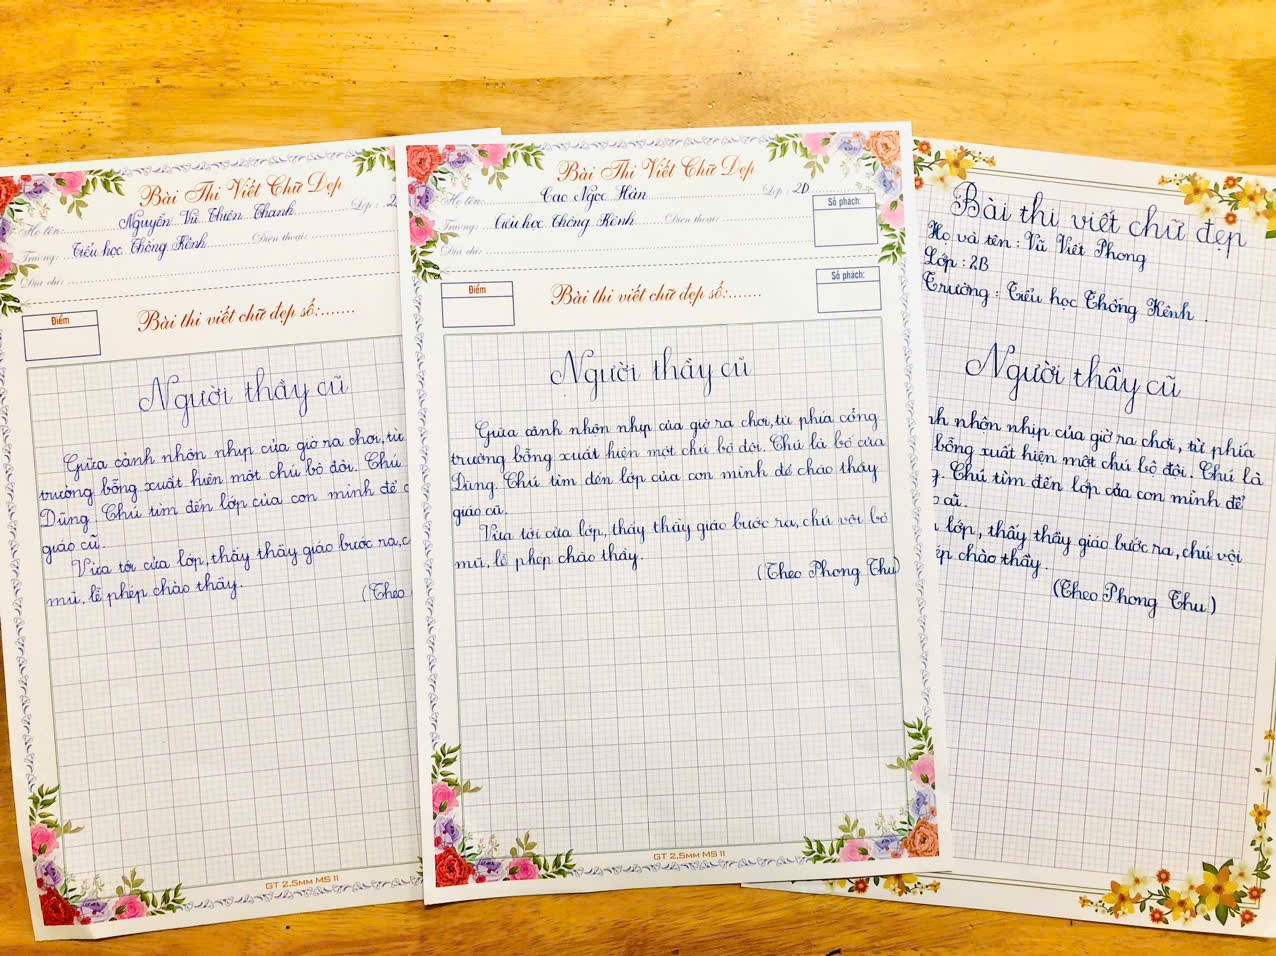 Bài Thi Viết Chữ Đẹp
Họ tên: Nguyễn Vũ Thiên Thanh Lớp: 2
Trường: Tiểu học Thống Kênh Điện thoại:
Địa chỉ:
Điểm
Bài thi viết chữ đẹp số:.......
Người thầy cũ
Giữa cảnh nhộn nhịp của giờ ra chơi, từ
trường bỗng xuất hiện một chú bộ đội. Chú
Dũng. Chú tìm đến lớp của con mình để c
giáo cũ.
Vừa tới cửa lớp, thấy thầy giáo bước ra, c
mũ, lễ phép chào thầy.
(Theo
GT 2,5MM MS 11
Bài Thi Viết Chữ Đẹp
Họ tên: Cao Ngọc Hân Lớp: 2D
Trường: Tiểu học Thống Kênh Điện thoại:
Địa chỉ:
Số phách:
Điểm
Bài thi viết chữ đẹp số:.......
Số phách:
Người thầy cũ
Giữa cảnh nhộn nhịp của giờ ra chơi, từ phía cổng
trường bỗng xuất hiện một chú bộ đội. Chú là bố của
Dũng. Chú tìm đến lớp của con mình để chào thầy
giáo cũ.
Vừa tới cửa lớp, thấy thầy giáo bước ra, chú vội bỏ
mũ, lễ phép chào thầy.
(Theo Phong Thu)
GT 2,5MM MS 11
Bài thi viết chữ đẹp
Họ và tên: Vũ Viết Phong
Lớp: 2B
Trường: Tiểu học Thống Kênh.
Người thầy cũ
nh nhộn nhịp của giờ ra chơi, từ phía
bỗng xuất hiện một chú bộ đội. Chú là
g. Chú tìm đến lớp của con mình để
cũ.
lớp, thấy thầy giáo bước ra, chú vội
ép chào thầy.
(Theo Phong Thu)